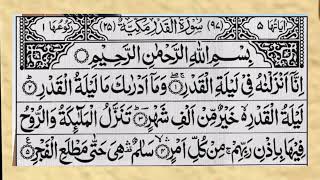 اٰیَاتُهَا ۵ (۹۷) سُوْرَةُ الْقَدْرِ مَكِّیَّةٌ (۲۵) رُكُوْعُهَا ۱
بِسْمِ اللّٰهِ الرَّحْمٰنِ الرَّحِیْمِ
اِنَّاۤ اَنْزَلْنٰهُ فِیْ لَیْلَةِ الْقَدْرِ ۝۱ وَ مَاۤ اَدْرٰىكَ مَا لَیْلَةُ الْقَدْرِ ۝۲
لَیْلَةُ الْقَدْرِ ۙ۬ خَیْرٌ مِّنْ اَلْفِ شَهْرٍ ۝۳ تَنَزَّلُ الْمَلٰٓىِٕكَةُ وَ الرُّوْحُ
فِیْهَا بِاِذْنِ رَبِّهِمْ ۚ مِنْ كُلِّ اَمْرٍ ۝۴ سَلٰمٌ ۛ۫ هِیَ حَتّٰى مَطْلَعِ الْفَجْرِ ۝۵